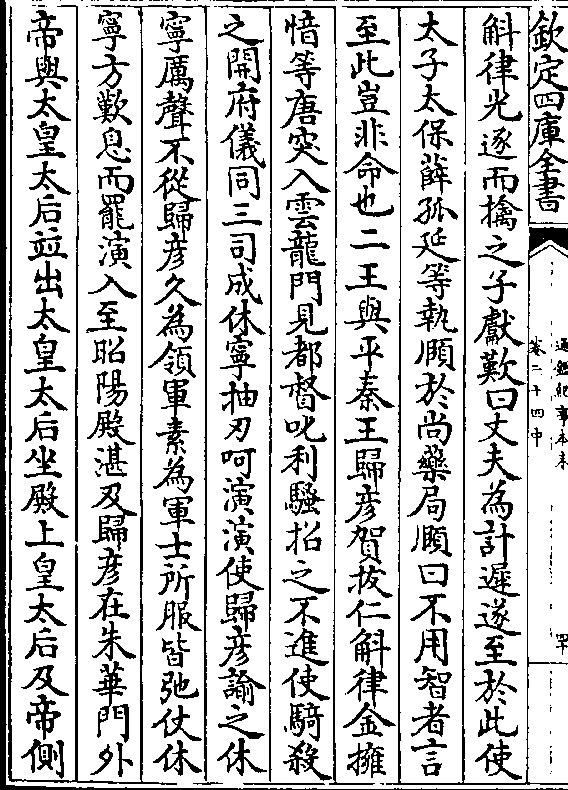 欽定四庫全書
通鑑紀事本末
卷二十四中
斛律光逐而擒之子獻歎曰丈夫為計遲遂至於此使
太子太保薛孤延等執頤於尚藥局頤曰不用智者言
至此豈非命也二王與平秦王歸彦賀拔仁斛律金擁
愔等唐突入雲龍門見都督叱利騷招之不進使騎殺
之開府儀同三司成休寧抽刃呵演演使歸彦諭之休
寧厲聲不從歸彦久為領軍素為軍士所服皆弛仗休
寧方歎息而罷演入至昭陽殿湛及歸彦在朱華門外
帝與太皇太后並出太皇太后坐殿上皇太后及帝側